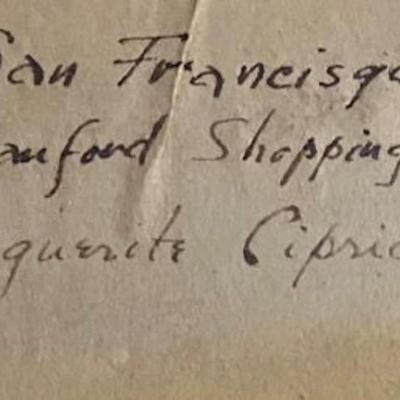 San Francisqu
anford Shopping
guerite Cipric